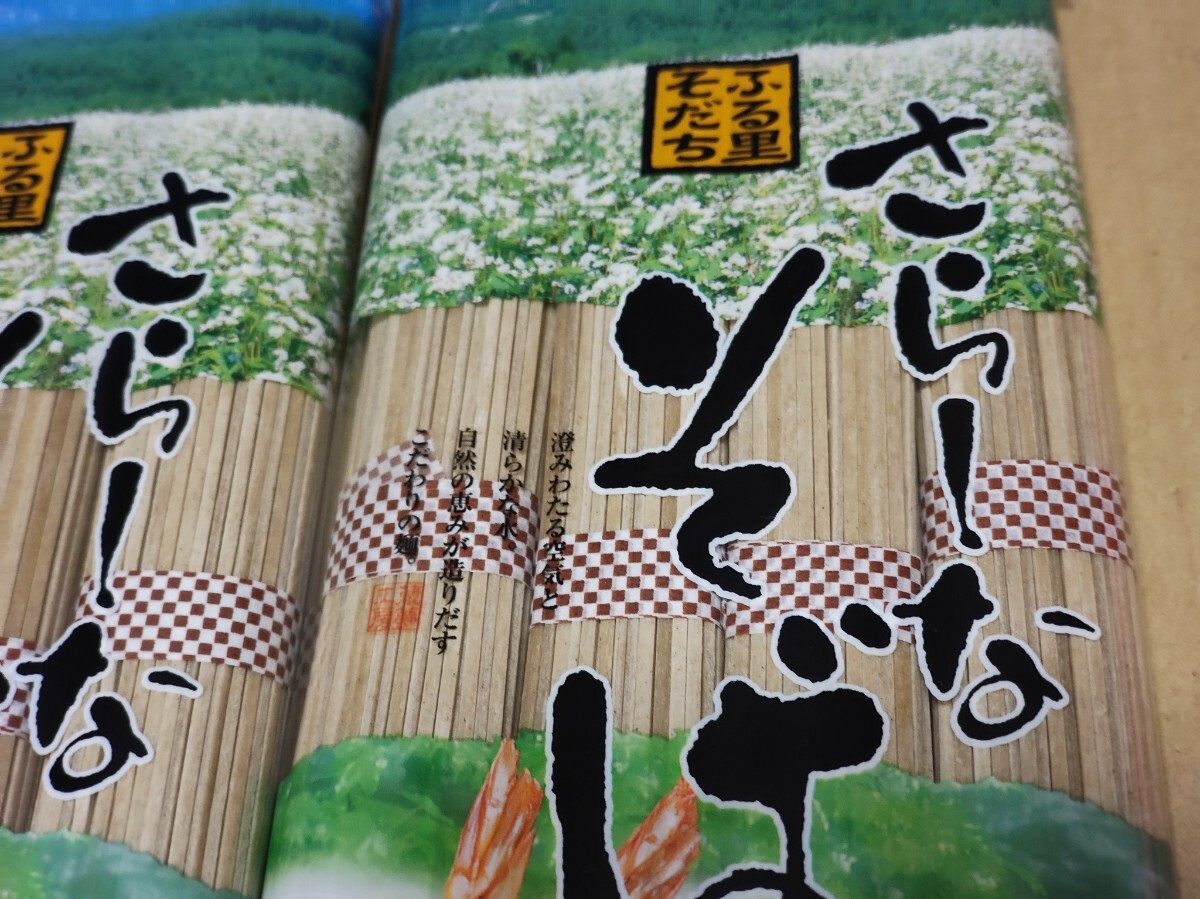 ふる里
そだち
さらーな
そば
澄みわたる空気と
清らかな水
自然の恵みが造りだす
こだわりの麺。
ふる里
さらーな